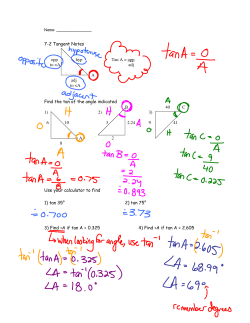 Name
7-2 Tangent Notes
hypotenuse
opposite
opp
to <A
hyp
A
adj
to <A
adjacent
Tan A = opp
adj
tan A = O
A
Find the tan of the angle indicated
1)
H
O
6
10
8
A
A
2)
B
H
A
3
2.24
2
O
3)
A
C
40
O
9
41
H
tan A = O
A
tan A = 6
8
= 0.75
tan B = O
A
= 2
2.24
= 0.893
tan C = O
A
tan C = 9
40
tan C = 0.225
Use your calculator to find
1) tan 35°
= 0.700
2) tan 75°
= 3.73
3) Find <A if tan A = 0.325
4) Find <A if tan A = 2.605
↳ when looking for angle, use tan⁻¹
tan⁻¹(tan A) = 0.325
∠A = tan⁻¹(0.325)
∠A = 18.0°
tan⁻¹
tan A = 2.605
∠A = 68.99°
∠A = 69°
remember degrees